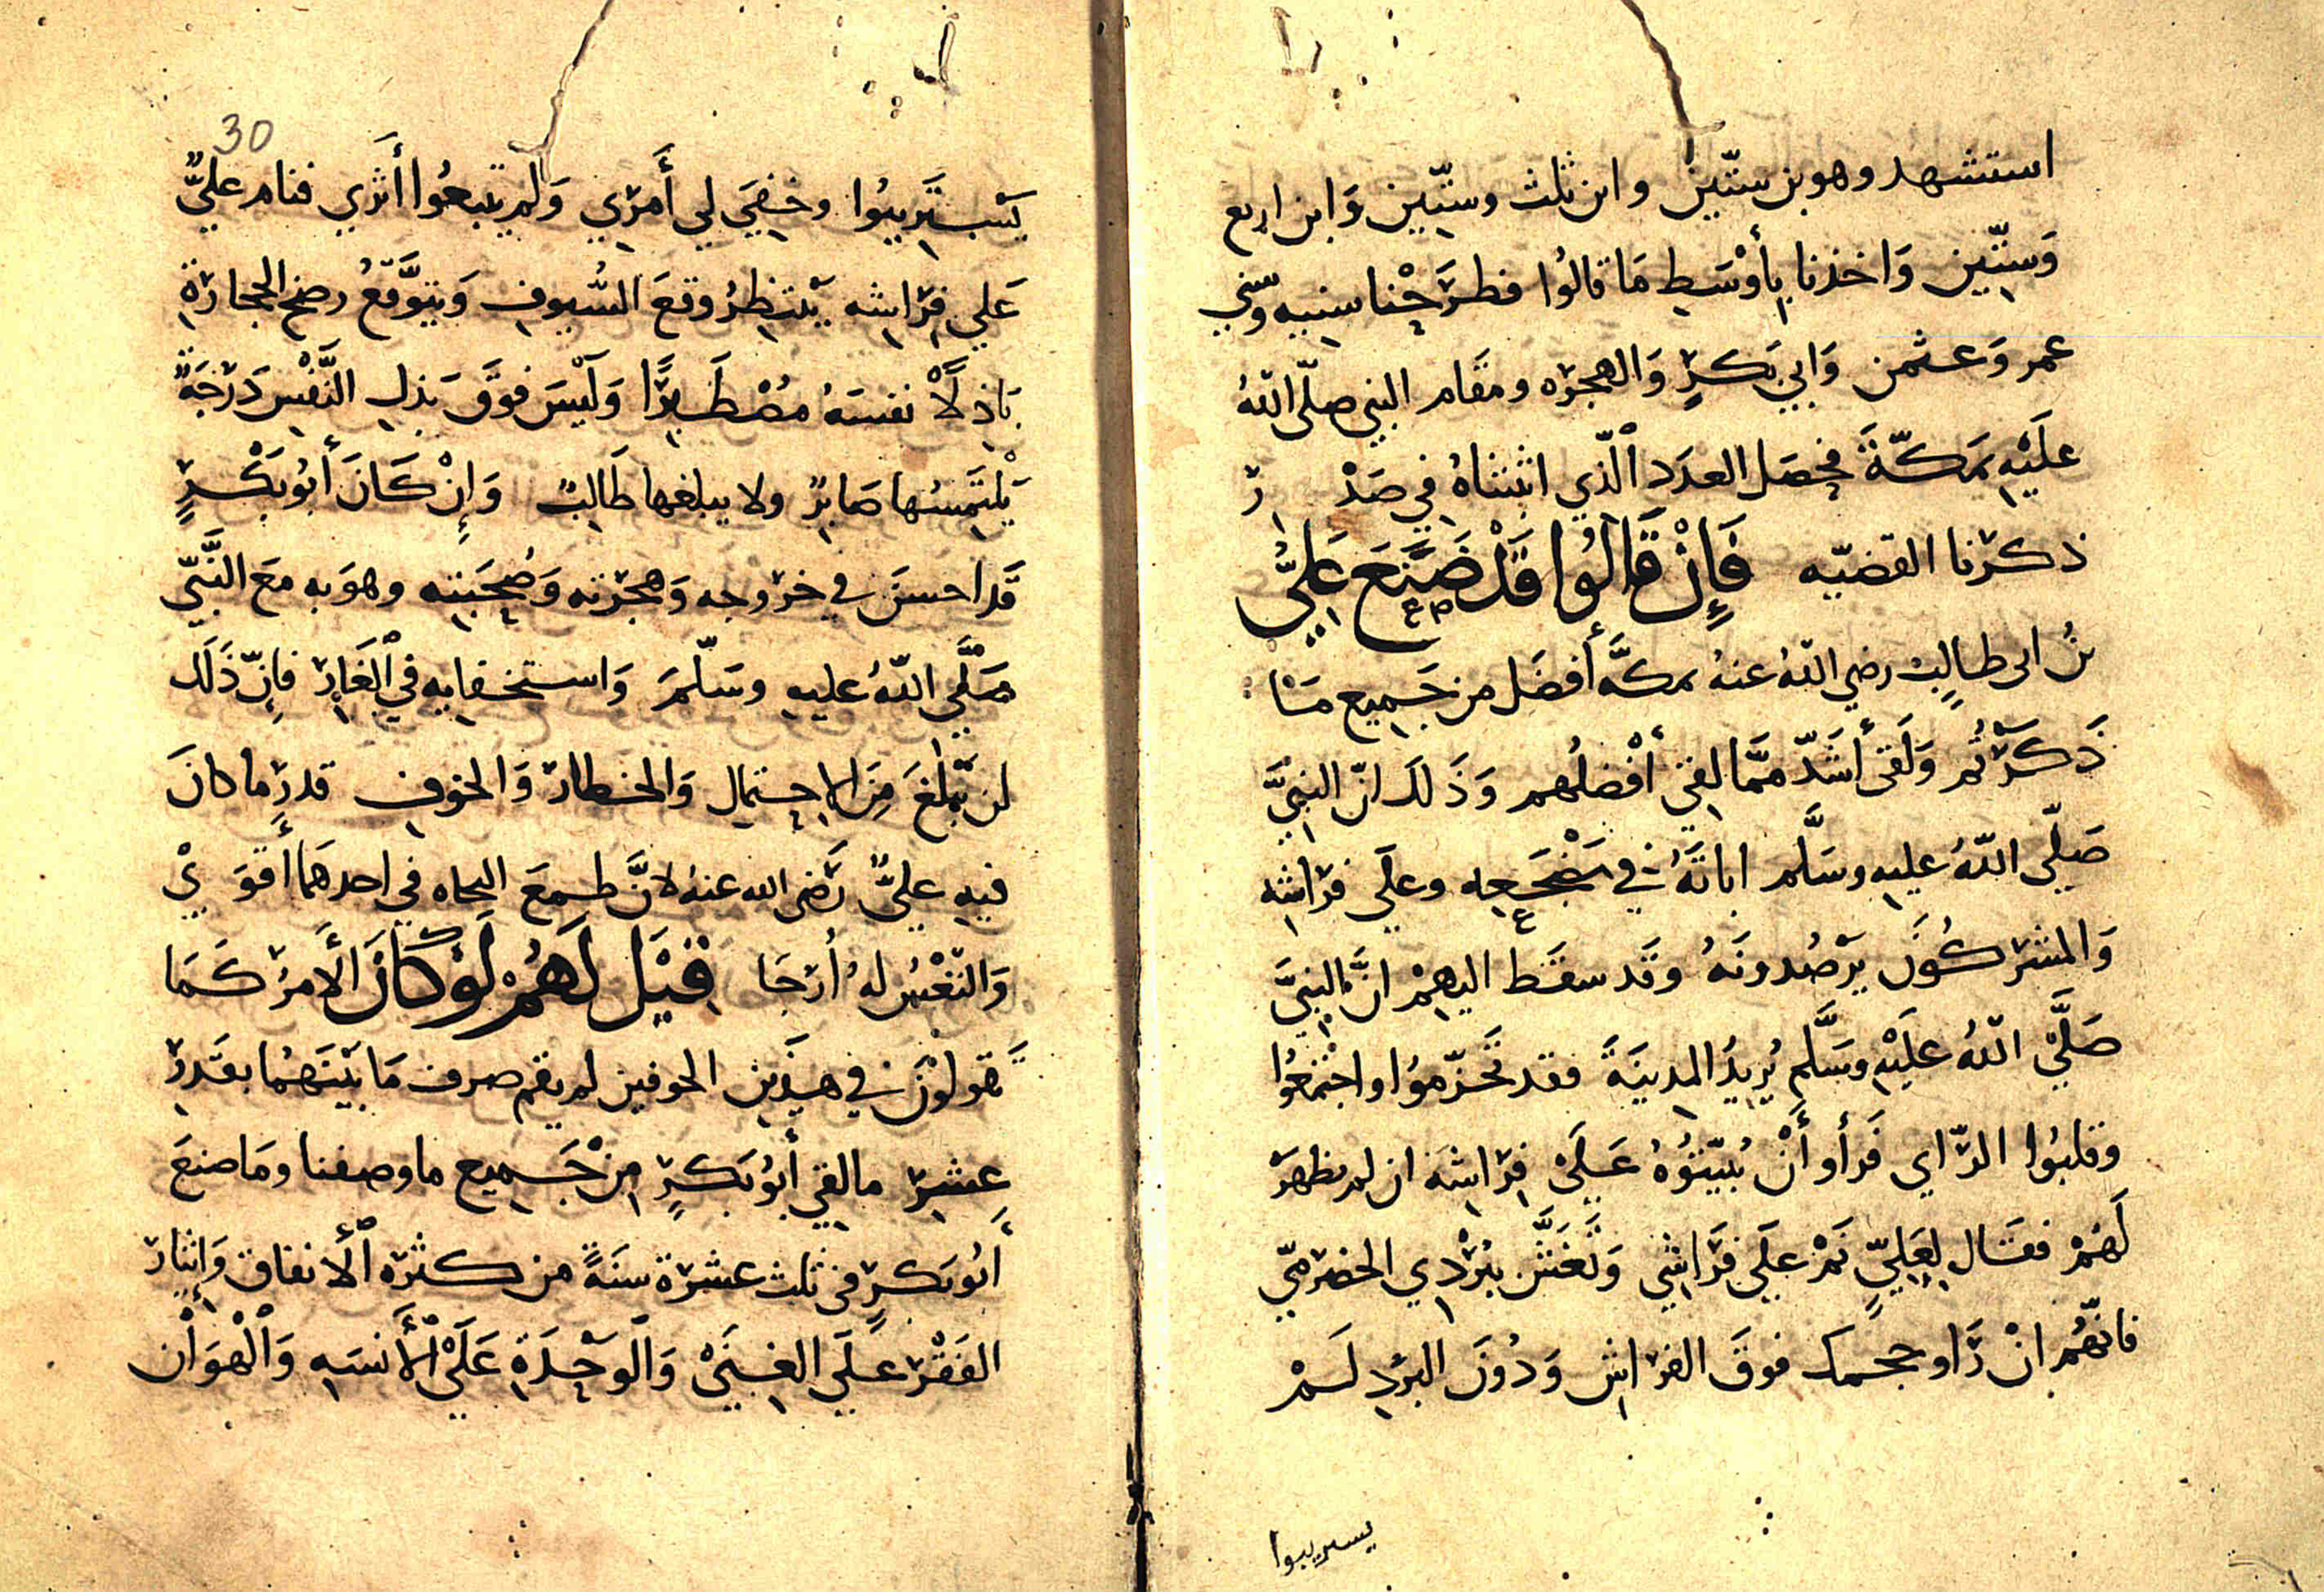 استشهد وهو بن ستّين وابن ثلث وستّين وَابن اربع
وَستّين وَاخذنا بِأوْسَطِ مَا قالُوا فطرَحْنا سنيه وسني
عمر وَعثمن وَابي بَكرٍ وَالهجره ومقَام النبي صلّى اللّهُ
علَيْهِ بمَكّةَ فحصَل العدَد الّذي اثبتناهُ في صَدْ رِ
ذكرنا القضيّه فَإِنْ قَالُوا قَدْ صَنَعَ عَلِيُّ
بنُ ابى طالِبٍ رضي اللّهُ عنهُ بمكَّه أفضَل من جَمِيع مَا
ذَكَرْتُم وَلَقى أَشَدّ ممَّا لقي أفْضلُهم وَذَلكَ انّ النبِيَّ
صَلّى اللّهُ عليهِ وسَلَّم اباتَهُ في مَضْجَعِه وعلَي فرَاشِه
وَالمشركُونَ يرْصُدونَهُ وقَد سقَط اليهِمْ انَّ النبِيَّ
صَلَّيْ اللّهُ علَيْهِ وسَلَّم يُرِيدُ المدينَةَ فقد تحَزّمُوا واجْتمعُوا
وقلبُوا الرّاي فَرأَو أَنْ يُبَيّتُوُهُ عَلَيْ فِرَاشِهَ ان لم يظهرْ
لَهُمْ فقَال لِعَلِيٍّ نَمْ علَي فرَاشِي وَتَغَشَّ بِبُرْدِي الحضرَميّ
فانّهُم انْ رَاو حجمك فوقَ الفرَاشِ وَدُونَ البرْدِ لَمْ
يستريبوا
30
يَسْتَرِيبُوا وخفِيَ لي أَمرِي وَلم يتبعُوا أثري فنام عليٌّ
عَلي فِرَاشِه يَنتظِرُ وقعَ السُّيوفِ وَيتوَّقعُ رضخ الحجارَةِ
بَاذِلاً نفسَهُ مُصْطَبِرًا وَلَيسَ فوقَ بَذلِ النَّفْسِ دَرَجَةً
يَلتَمِسُها صَابرٌ ولا يبلغها طَالِبٌ وَإِنْ كَانَ أَبُو بَكْرٍ
قَد احسنَ في خروجه وَهجرته وَصُحبَتِه وهوَبه معَ النَّبيّ
صَلَّي اللّهُ عليهِ وسَلّمَ وَاستخفايه في الغَارِ فإنّ ذَلَك
لن يبْلغَ مِنَ الاحتمال وَالخطار وَالخوفِ قدرِ ما كانَ
فيهِ عليٌّ رَضى الله عنهُ لانَّ طمعَ النجاه في احدهمَا أَقوَ يْ
وَالتّغْيُر لهُ أرْجَا قِيْل لَهُمْ لَوْ كَانَ الأَمرُ كَمَا
تَقولُونَ في هذَين الخوفين لم يقم صرف مَا بَيْنَهُما بقدرِ
عشِرِ ما لقي أَبُو بَكرٍ مِنْ جَميع ما وصفنا ومَا صنعَ
أَبُو بَكرٍ في ثلث عشرة سنَةً من كثرة الانفاق وَإيثار
الفَقْرِ عَلَى الغِنَيْ وَالوَحْدَةِ عَلَيْ الأُنسَهِ وَالْهوَان